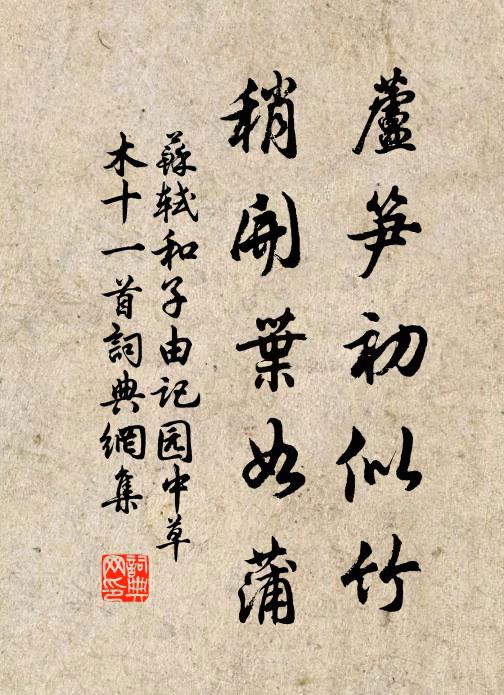 蘆笋初似竹
稍開葉如蒲
蘇轼和子由记园中草
木十一首詞典網集
詞典
网印